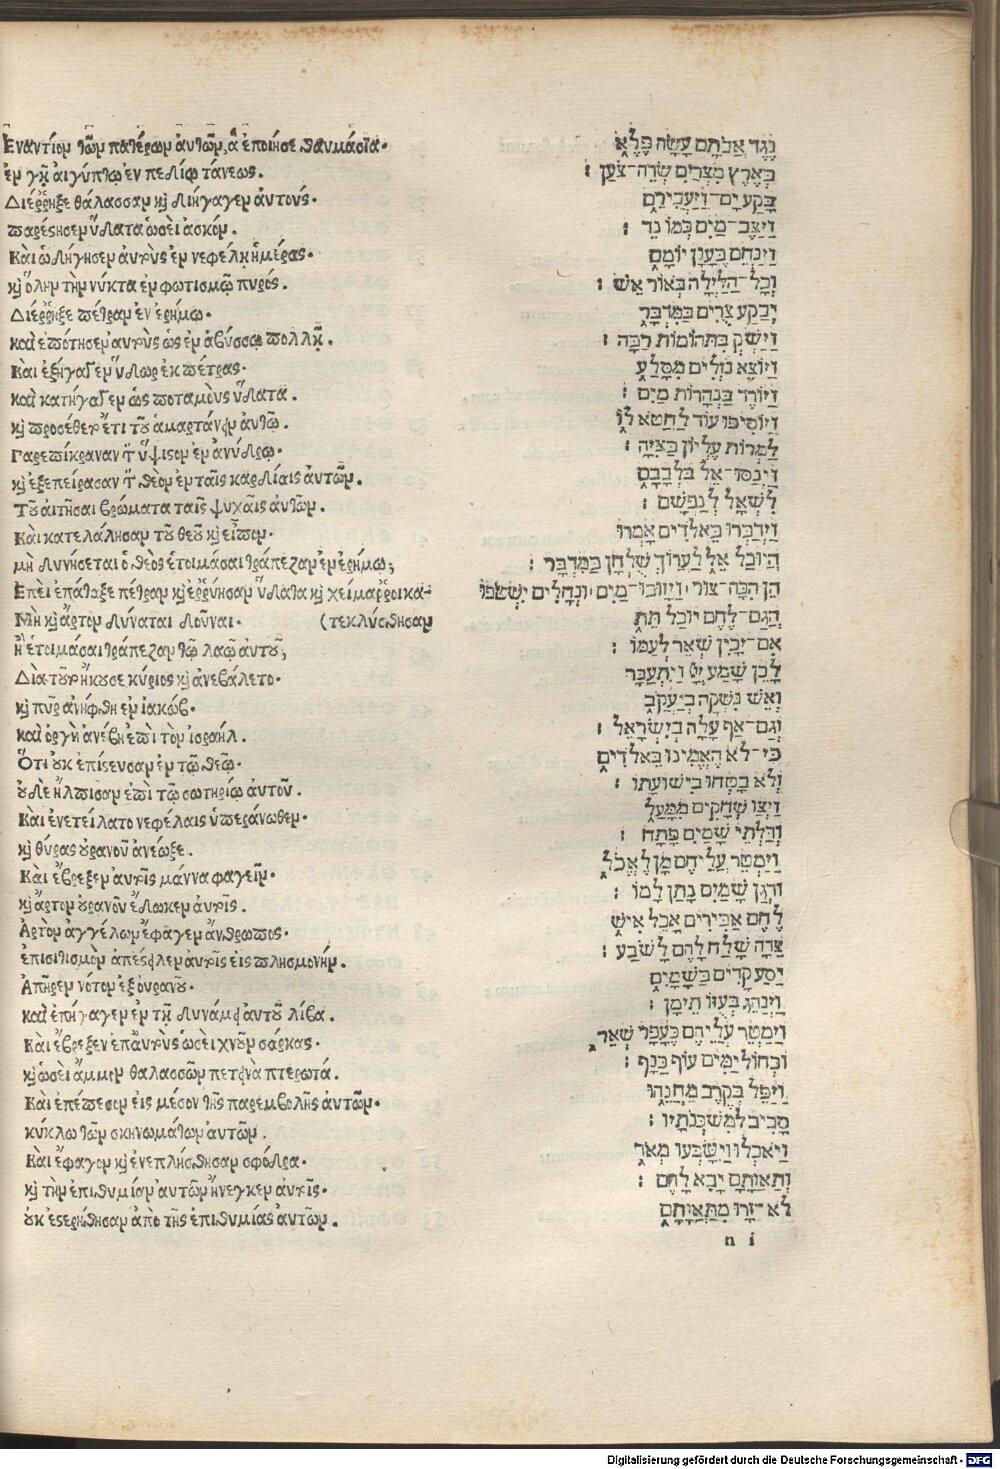 Εναντίον τῶν πατέρων ἀυτῶν, ἃ ἐποίησε θαυμάσια·
ἐν γῇ αἰγύπτῳ ἐν πεδίῳ τάνεως.
Διέῤῥηξε θάλασσαν κỳ διήγαγεν ἀυτούς·
παρέστησεν ὕδατα ὡσεὶ ἀσκόν.
Καὶ ὡδήγησεν ἀυτοὺς ἐν νεφέλῃ ἡμέρας·
κỳ ὅλην τὴν νύκτα ἐν φωτισμῷ πυρός.
Διέῤῥηξε πέτραν ἐν ἐρήμῳ·
καὶ ἐπότησεν ἀυτοὺς ὡς ἐν ἀβύσσῳ πολλῇ.
Καὶ ἐξήγαγεν ὕδωρ ἐκ πέτρας·
καὶ κατήγαγεν ὡς ποταμοὺς ὕδατα.
κỳ προσέθεντο ἔτι τοῦ ἁμαρτάνειν ἀυτῷ.
Παρεπίκραναν τὸν ὕψιστον ἐν ἀνύδρῳ·
κỳ ἐξεπείρασαν τὸν θεὸν ἐν ταῖς καρδίαις ἀυτῶν.
Τοῦ αἰτῆσαι βρώματα ταῖς ψυχαῖς ἀυτῶν.
Καὶ κατελάλησαν τοῦ θεοῦ κỳ εἶπον·
μὴ δυνήσεται ὁ θεὸς ἑτοιμάσαι τράπεζαν ἐν ἐρήμῳ;
Επεὶ ἐπάταξε πέτραν κỳ ἐῤῥύησαν ὕδατα κỳ χείμαῤῥοι κα-
Μὴ κỳ ἄρτον δύναται δοῦναι· (τεκλύσθησαν
ἢ ἑτοιμάσαι τράπεζαν τῷ λαῷ ἀυτοῦ;
Διὰ τοῦτο ἤκουσε κύριος κỳ ἀνεβάλετο·
κỳ πῦρ ἀνήφθη ἐν ἰακώβ·
καὶ ὀργὴ ἀνέβη ἐπὶ τὸν ἰσραήλ.
Ὅτι ὀυκ ἐπίστευσαν ἐν τῷ θεῷ·
ὀυδὲ ἤλπισαν ἐπὶ τῷ σωτηρίῳ ἀυτοῦ.
Καὶ ἐνετείλατο νεφέλαις ὑπεράνωθεν·
κỳ θύρας ὀυρανοῦ ἀνέωξε.
Καὶ ἔβρεξεν ἀυτοῖς μάννα φαγεῖν·
κỳ ἄρτον ὀυρανοῦ ἔδωκεν ἀυτοῖς.
Αρτον ἀγγέλων ἔφαγεν ἄνθρωπος·
ἐπισιτισμὸν ἀπέστειλεν ἀυτοῖς εἰς πλησμονήν.
Απῆρεν νότον ἐξ ὀυρανοῦ·
καὶ ἐπήγαγεν ἐν τῇ δυνάμει ἀυτοῦ λίβα.
Καὶ ἔβρεξεν ἐπ᾽ ἀυτοὺς ὡσεὶ χνοῦν σάρκας·
κỳ ὡσεὶ ἄμμον θαλασσῶν πετεινὰ πτερωτά.
Καὶ ἐπέπεσον εἰς μέσον τῆς παρεμβολῆς ἀυτῶν·
κύκλῳ τῶν σκηνωμάτων ἀυτῶν.
Καὶ ἔφαγον κỳ ἐνεπλήσθησαν σφόδρα·
κỳ τὴν ἐπιθυμίαν ἀυτῶν ἤνεγκεν ἀυτοῖς·
ὀυκ ἐστερήθησαν ἀπὸ τῆς ἐπιθυμίας ἀυτῶν.
נֶגֶד אֲבֹתָם עָשָׂה פֶלֶא
בְּאֶרֶץ מִצְרַיִם שְׂדֵה־צֹעַן :
בָּקַע יָם־וַיַּעֲבִירֵם
וַיַּצֶּב־מַיִם כְּמוֹ נֵד :
וַיַּנְחֵם בֶּעָנָן יוֹמָם
וְכָל־הַלַּיְלָה בְּאוֹר אֵשׁ :
יְבַקַּע צֻרִים בַּמִּדְבָּר
וַיַּשְׁקְ כִּתְהוֹמוֹת רַבָּה :
וַיּוֹצִא נוֹזְלִים מִסָּלַע
וַיּוֹרֶד כַּנְּהָרוֹת מָיִם :
וַיּוֹסִיפוּ עוֹד לַחֲטֹא לוֹ
לַמְרוֹת עֶלְיוֹן בַּצִּיָּה :
וַיְנַסּוּ־אֵל בִּלְבָבָם
לִשְׁאָל לְנַפְשָׁם :
וַיְדַבְּרוּ בֵּאלֹדִים אָמְרוּ
הֲיוּכַל אֵל לַעֲרוֹךְ שֻׁלְחָן בַּמִּדְבָּר :
הֵן הִכָּה־צוּר וַיָּזוּבוּ־מַיִם וּנְחָלִים יִשְׁטֹפוּ
הֲגַם־לֶחֶם יוּכַל תֵּת
אִם־יָכִין שְׁאֵר לְעַמּוֹ :
לָכֵן שָׁמַע יְיָ וַיִּתְעַבָּר
וְאֵשׁ נִשְּׂקָה בְיַעֲקֹב
וְגַם־אַף עָלָה בְיִשְׂרָאֵל :
כִּי־לֹא הֶאֱמִינוּ בֵּאלֹדִים
וְלֹא בָטְחוּ בִּישׁוּעָתוֹ :
וַיְצַו שְׁחָקִים מִמָּעַל
וְדַלְתֵי שָׁמַיִם פָּתָח :
וַיַּמְטֵר עֲלֵיהֶם מָן לֶאֱכֹל
וּדְגַן שָׁמַיִם נָתַן לָמוֹ :
לֶחֶם אַבִּירִים אָכַל אִישׁ
צֵדָה שָׁלַח לָהֶם לָשֹׂבַע :
יַסַּע קָדִים בַּשָּׁמָיִם
וַיְנַהֵג בְּעֻזּוֹ תֵימָן :
וַיַּמְטֵר עֲלֵיהֶם כֶּעָפָר שְׁאֵר
וּכְחוֹל יַמִּים עוֹף כָּנָף :
וַיַּפֵּל בְּקֶרֶב מַחֲנֵהוּ
סָבִיב לְמִשְׁכְּנֹתָיו :
וַיֹּאכְלוּ וַיִּשְׂבְּעוּ מְאֹד
וְתַאֲוָתָם יָבִא לָהֶם :
לֹא־זָרוּ מִתַּאֲוָתָם
n i
Digitalisierung gefördert durch die Deutsche Forschungsgemeinschaft - DFG